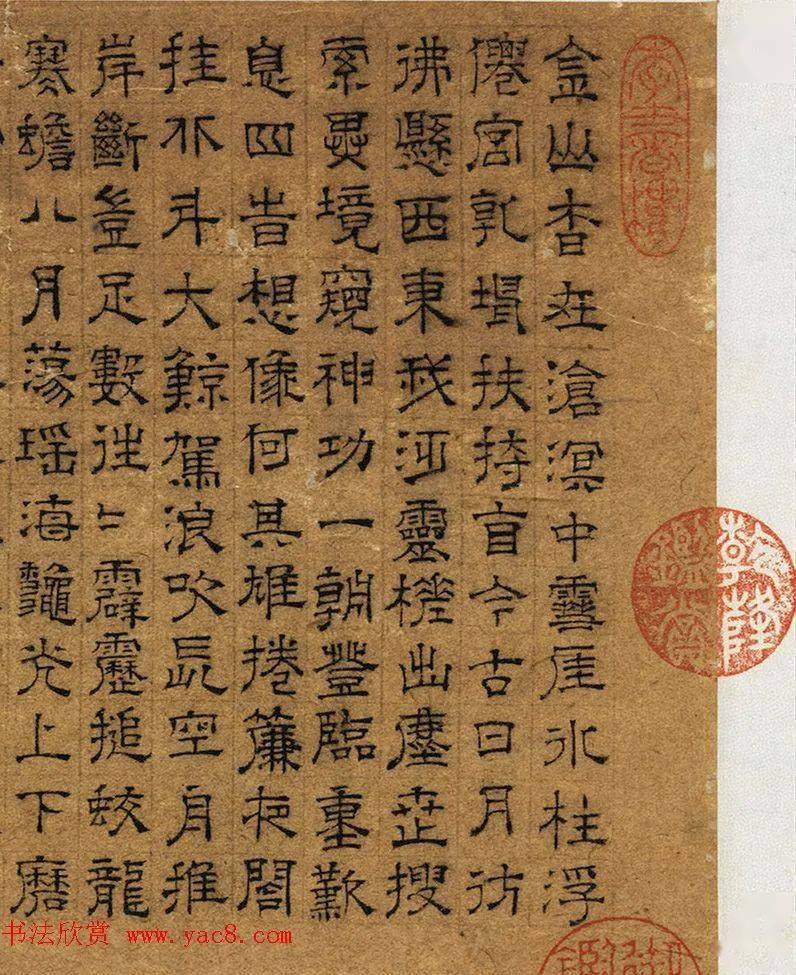 金山杳在滄溟中雪厓冰柱浮
僊宮乾坤扶持自今古日月彷
彿懸西東我泛靈槎出塵世搜
索異境窺神功一朝登臨重歎
息四時想像何其雄捲簾夜閣
挂北斗大鯨駕浪吹長空舟摧
岸斷豈足數往〻霹靂搥蛟龍
寒蟾八月蕩瑤海龝光上下磨
书法欣赏 www.yac8.com